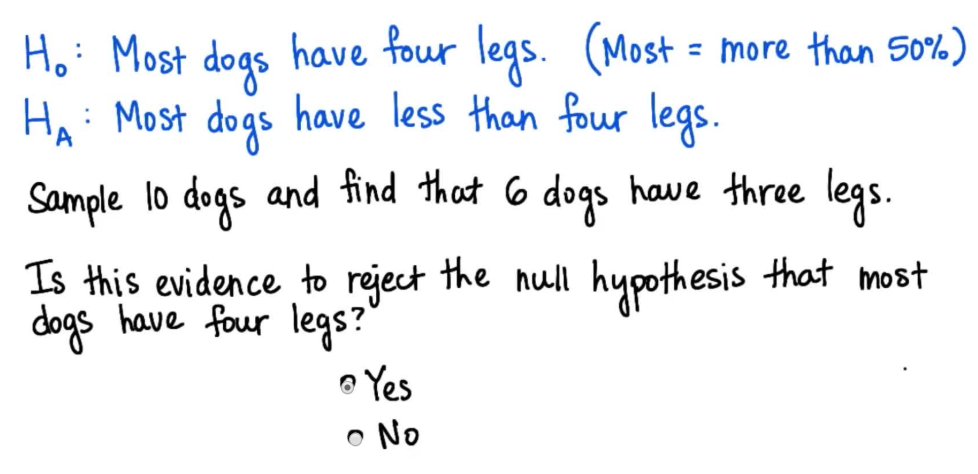 H₀: Most dogs have four legs. (Most = more than 50%)
H_A: Most dogs have less than four legs.
Sample 10 dogs and find that 6 dogs have three legs.
Is this evidence to reject the null hypothesis that most
dogs have four legs?
Yes
No